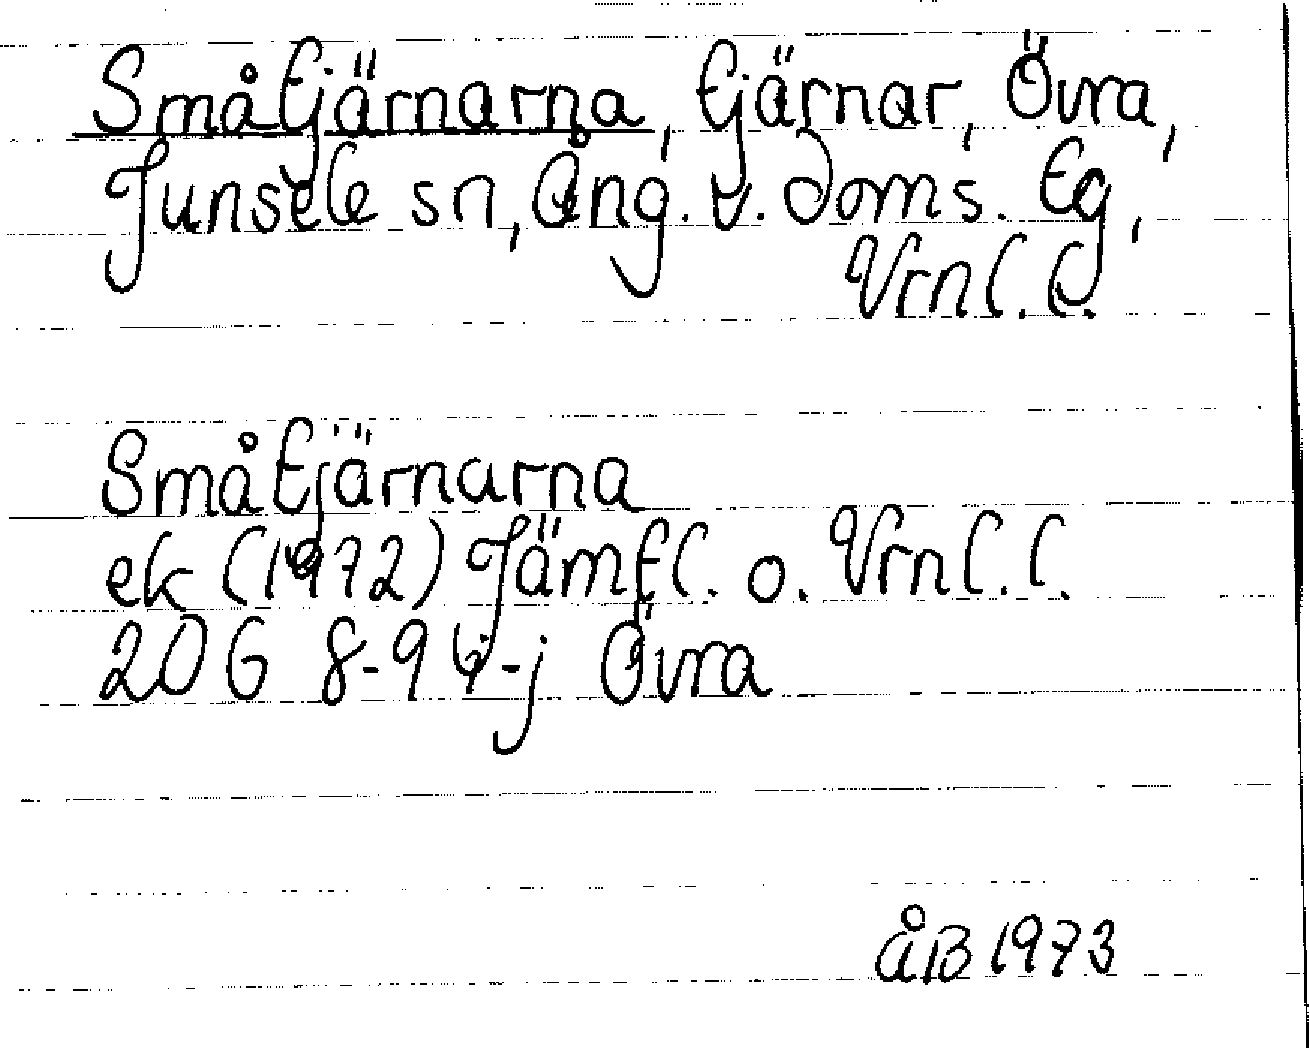 Småtjärnarna, tjärnar, Övra,
Junsele sn, Ång. v. doms. tg,
Vrnl. l.
Småtjärnarna
ek (1972) Jämtl. o. Vrnl. l.
20G 8-9 i-j Övra
ÅB 1973